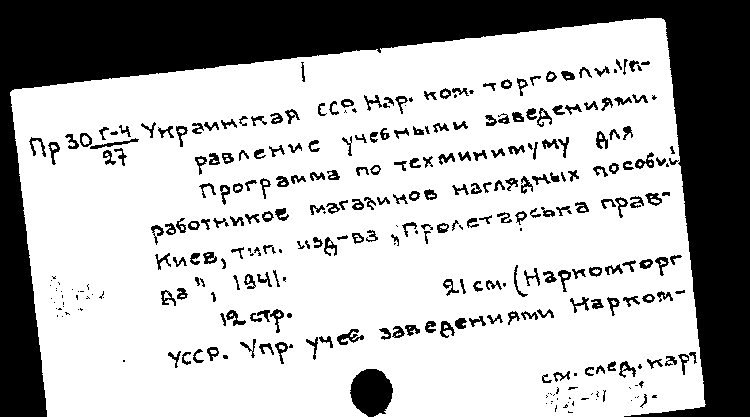 Пр 30 Г-4/27 Украинская ССР. Нар. ком. торговли. Уп-
равление учебными заведениями.
Программа по техминимуму для
работников магазинов наглядных пособий.
Киев, тип. изд-ва „Пролетарська прав-
да", 1941.
12 стр. 21 см. (Наркомторг
УССР. Упр. учеб. заведениями Нарком-
см. след. карт